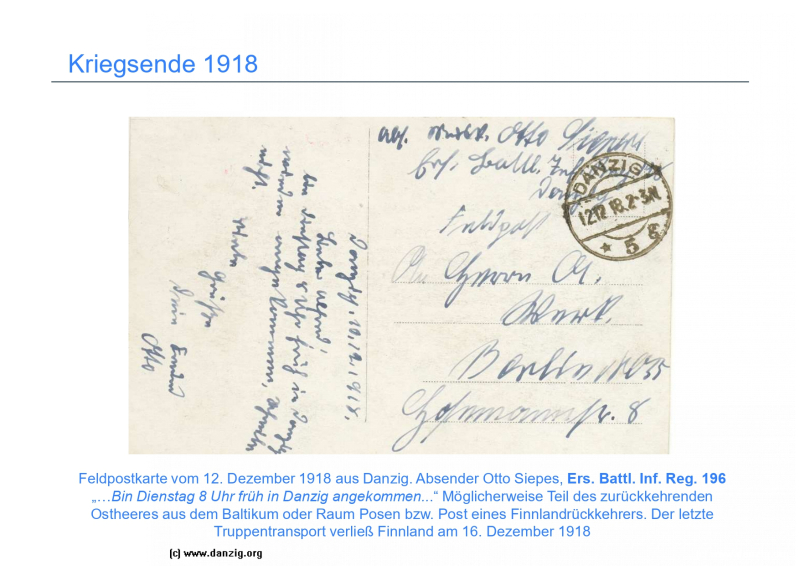 Kriegsende 1918
Abs. Otto Siepes
Ers. Battl. Inf.
Danzig
Feldpost
DANZIG
12.12.18.2-3N.
* 5 g
An Herrn A.
Werk.
Berlin NO55
Hosemannstr. 8
Danzig, 10.12.1918.
Lieber Alfred,
Bin Dienstag 8 Uhr früh in Danzig
angekommen,
Otto
Feldpostkarte vom 12. Dezember 1918 aus Danzig. Absender Otto Siepes, Ers. Battl. Inf. Reg. 196
„…Bin Dienstag 8 Uhr früh in Danzig angekommen...“ Möglicherweise Teil des zurückkehrenden
Ostheeres aus dem Baltikum oder Raum Posen bzw. Post eines Finnlandrückkehrers. Der letzte
Truppentransport verließ Finnland am 16. Dezember 1918
(c) www.danzig.org